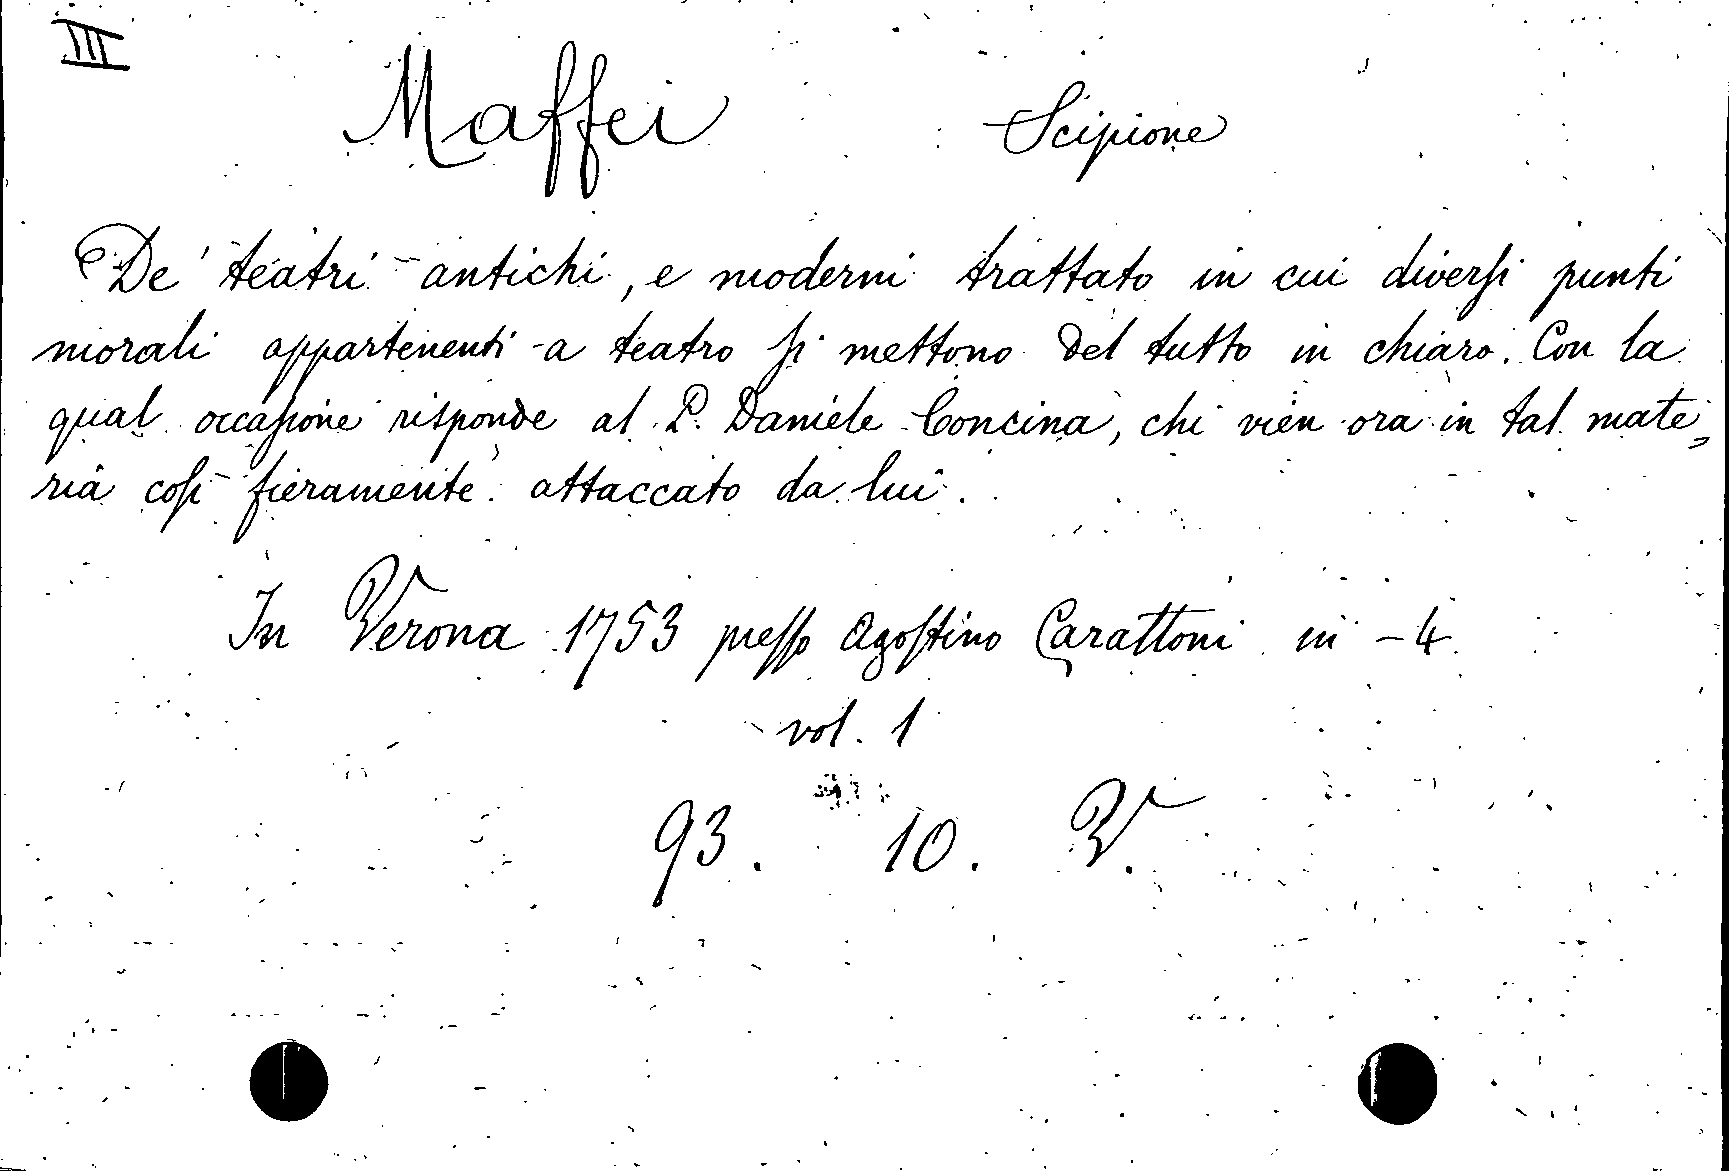 III
Maffei Scipione
De' teatri antichi, e moderni trattato in cui diverſi punti
morali appartenenti a teatro ſi mettono del tutto in chiaro. Con la
qual occaſione risponde al P. Daniele Concina, chi vien ora in tal mate„
ria coſì fieramente attaccato da lui.
In Verona 1753 preſſo Agoſtino Carattoni in-4
vol. 1
93. 10. V.